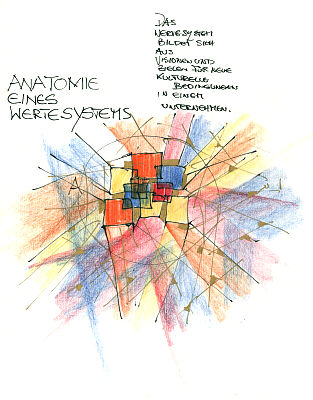 ANATOMIE
EINES
WERTESYSTEMS
DAS
WERTESYSTEM
BILDET SICH
AUS
VISIONEN UND
ZIELEN FÜR NEUE
KULTURELLE
BEDINGUNGEN
IN EINEM
UNTERNEHMEN.